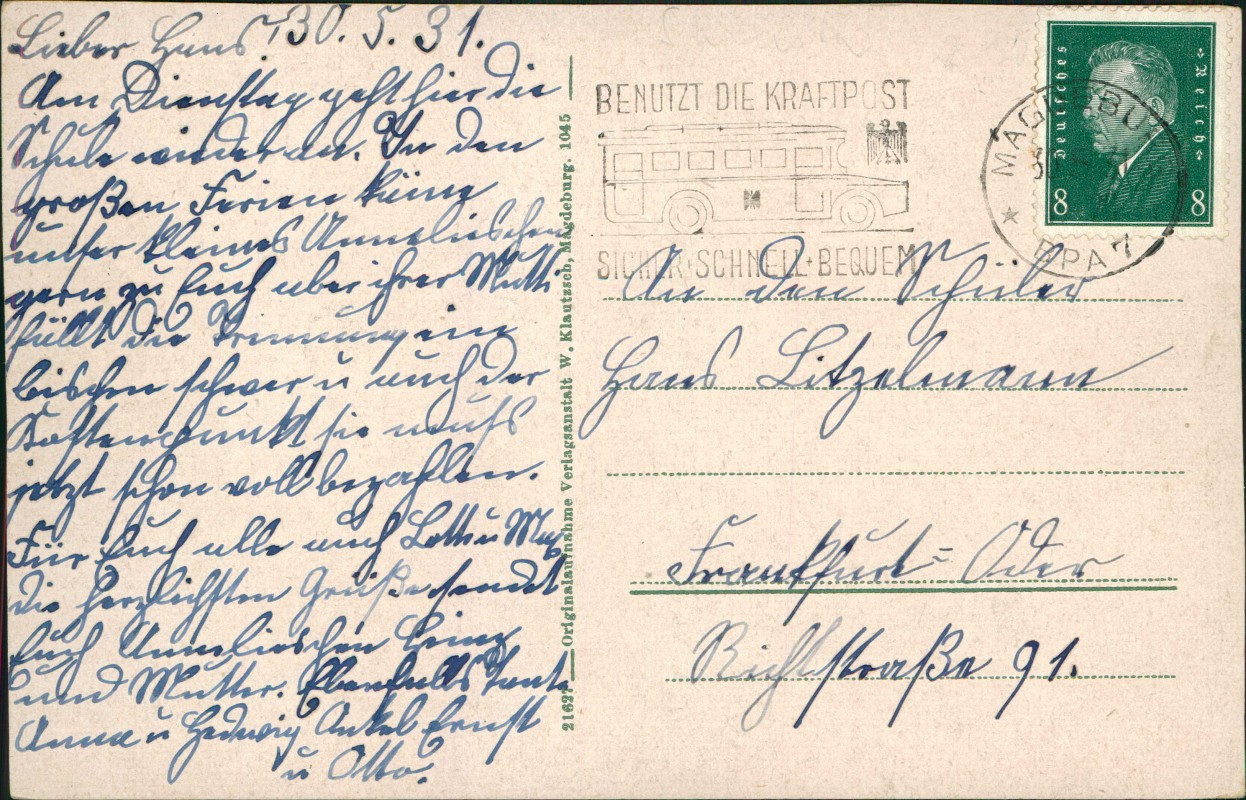 Lieber Hans! 30. 5. 31.
Am Dienstag geht hier die
Schule wieder an. In den
großen Ferien käme
unser kleines Annelieschen
gern zu Euch aber ihrer Mutti
fällt die Trennung ein
bischen schwer u auch der
Kostenpunkt sie muß
jetzt schon voll bezahlen.
Für Euch alle auch Lotte u
die herzlichsten Grüße sendet
Euch Annelieschen Heinz
und Mutter. Ebenfalls Tante
Anna u Hedwig Onkel Ernst
u Otto.
21627 Originalaufnahme Verlagsanstalt W. Klautzsch, Magdeburg. 1045
BENUTZT DIE KRAFTPOST
SICHER + SCHNELL + BEQUEM
MAGDEBURG
BPA 7
Deutsches Reich
8 8
An den Schüler
Hans Litzelmann
Frankfurt = Oder
Richtstraße 91.